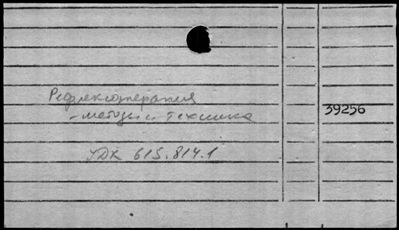 Рефлексотерапия
39256
- методы и техника
УДК 615.814.1